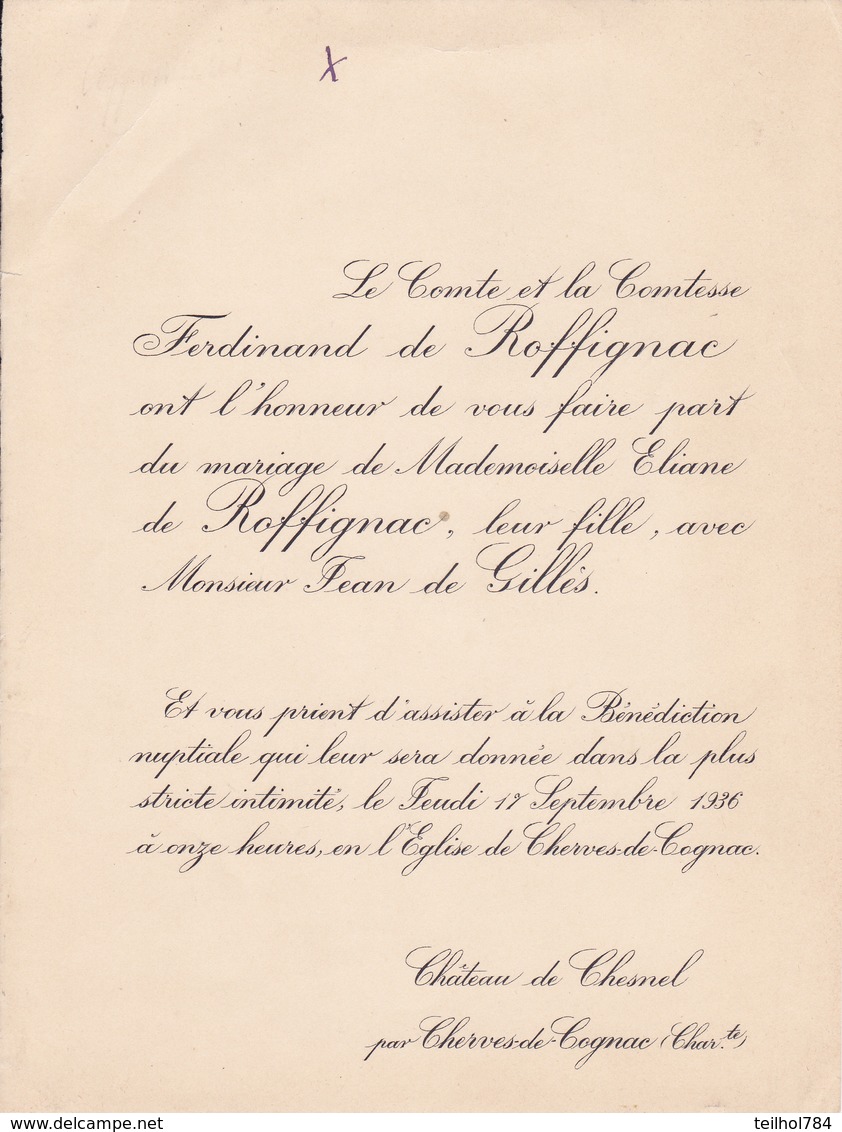 X
Le Comte et la Comtesse
Ferdinand de Roffignac
ont l'honneur de vous faire part
du mariage de Mademoiselle Eliane
de Roffignac, leur fille, avec
Monsieur Jean de Gillès.
Et vous prient d'assister à la Bénédiction
nuptiale qui leur sera donnée dans la plus
stricte intimité, le Jeudi 17 Septembre 1936
à onze heures, en l'Eglise de Cherves-de-Cognac.
Château de Chesnel
par Cherves-de-Cognac (Char.te)
delcampe.net
teilhol784